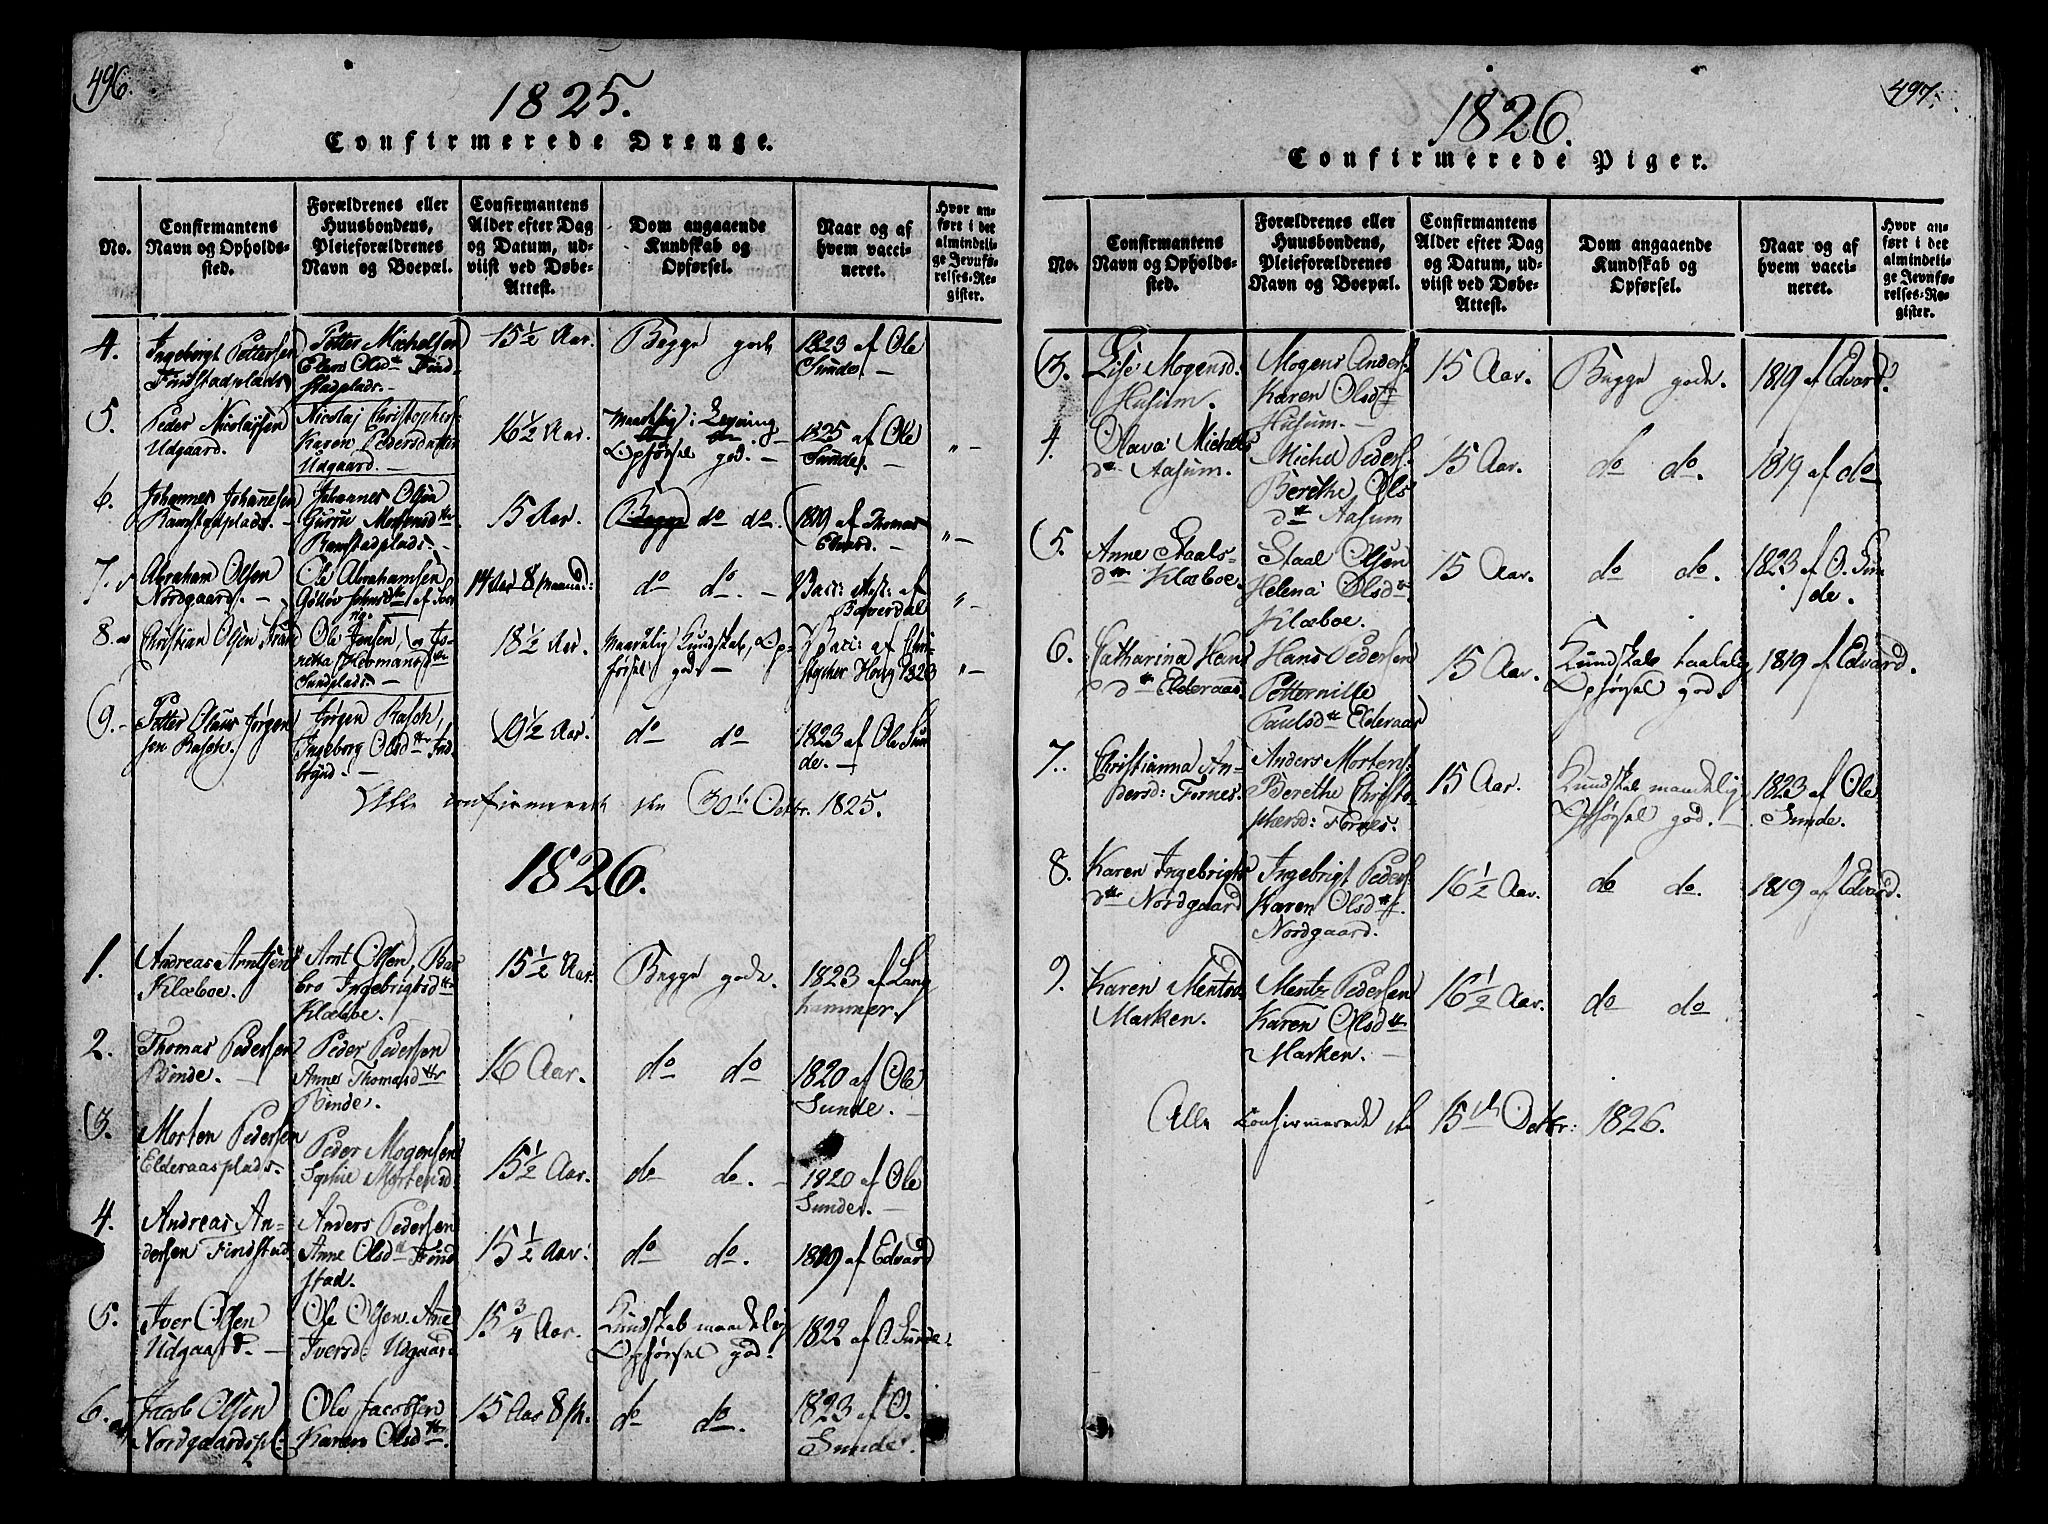 496.
1825.
Confirmerede Drenge.
No.
Confirmantens
Navn og Opholds-
sted.
Forældrenes eller
Huusbondens,
Pleieforældrenes
Navn og Boepæl.
Confirmantens
Alder efter Dag
og Datum, ud-
viist ved Døbe-
Attest.
Dom angaaende
Kundskab og
Opførsel.
Naar og af
hvem vacci-
neret.
Hvor an-
ført i det
almindeli-
ge Jevnfø-
relses-Re-
gister.
4.
Ingeborgt Pettersen
Findstadplads
Petter Michelsen
Elen Olsdtr Find-
stadplads.
15½ Aar.
Begge gode
1823 af Ole
Sunde. —
5.
Peder Nicolaisen
Udgaard.
Nicolaj Christophers.
Karen Pedersdatter
Udgaard. —
16½ Aar.
Opførsel god. —
1825 af Ole
Sunde. —
" —
6.
Johannes Johannesen
Ramstadplads. —
Johannes Olsen
Guru Mogensdtr
Ramstadplads. —
15 Aar.
Begge do do.
1819 af Thomas
Edvard. —
" —
7.
Abraham Olsen
Nordgaard. —
Ole Abrahamsen
14 Aar 8 Maaned:
do do. —
Vacc: Att: af
Bæverdal
" —
8.
Christian Olsen Strand
Ole Jensen,
Sundplads. —
18½ Aar.
Maadelig Kundskab, Op-
førsel god. —
Vacc: af Chri-
stopher Hoeg 1823
" —
9. —
Petter Olaus Jørgen-
sen Rasch.
Jørgen Rasch,
Ingeborg Olsdtr Ind-
bynd. —
19½ Aar.
do do
1823 af Ole Sun-
de. —
Alle confirmerede den 30te Octbr. 1825.
1826.
1.
Andreas Arntsen
Klæboe.
Arnt Olsen, Bar-
bro Ingebrigtsdtr
Klæboe.
15½ Aar.
Begge gode.
1823 af Lang
hammer.
2.
Thomas Pedersen
Binde. —
Peder Pedersen
Anne Thomasdtr
Binde.
16 Aar.
do do
1820 af Ole
Sunde. —
3.
Morten Pedersen
Elderaasplads.
Peder Mogensen
Sophie Mortensd.
15½ Aar.
do do. —
1820 af Ole
Sunde. —
4.
Andreas An-
dersen Findstad
Anders Pedersen
Anne Olsdtr Find
stad.
15½ Aar.
do do.
1819 af Edvard
5.
Iver Olsen
Udgaard. —
Ole Olsen. Ane
Iversd: Udgaard
15¾ Aar.
Kundskab maadelig
Opførsel god.
1822 af O. Sunde.
6.
Jacob Olsen
Nordgaardspl:
Ole Jacobsen
Karen Olsdtr.
15 Aar 8 M.
do do.
1823 af O.
Sunde.
497.
1826.
Confirmerede Piger.
No.
Confirmantens
Navn og Opholds-
sted.
Forældrenes eller
Huusbondens,
Pleieforældrenes
Navn og Boepæl.
Confirmantens
Alder efter Dag
og Datum, ud-
viist ved Døbe-
Attest.
Dom angaaende
Kundskab og
Opførsel.
Naar og af
hvem vacci-
neret.
Hvor an-
ført i det
almindeli-
ge Jevnfø-
relses-Re-
gister.
3.
Lise Mogensd.
Husum.
Mogens Anders.
Karen Olsdtr
Husum. —
15 Aar.
Begge gode.
1819 af Edvard.
4.
Olava Michels
dtr Aasum.
Michel Peders.
Berethe Ols
dtr Aasum
15 Aar.
do do.
1819 af do
5.
Anne Staals-
dtr Klæboe.
Staal Olsen
Helena Olsdtr
Klæboe.
15 Aar.
do do.
1823 af O. Sun
de.
6.
Catharina Hans
dtr Elderaas.
Hans Pedersen
Petternille
Paulsdtr Elderaas
15 Aar.
Kundskab taalelig
Opførsel god.
1819 af Edvard.
7.
Christianna An-
dersd: Fornes.
Anders Mortens.
Berethe Christo
phersd: Fornes.
15 Aar.
Kundskab maadelig
Opførsel god. —
1823 af Ole
Sunde.
8.
Karen Ingebrigts
dtr Nordgaard
Ingebrigt Peders.
Karen Olsdtr.
Nordgaard.
16½ Aar.
do do.
1819 af Edvard.
9.
Karen Mentsd.
Marken.
Mentz Pedersen
Karen Olsdtr
Marken. —
16½ Aar.
do do
Alle Confirmerede den 15de Octbr: 1826.